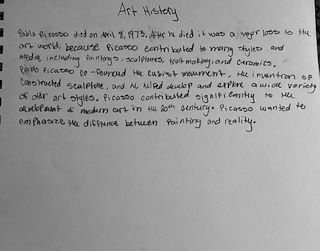 Art History
Pablo Picasso died on April 8, 1973. After he died it was a major loss to the
art world because Picasso contributed to many styles and
media, including paintings, sculptures, printmaking, and ceramics.
Pablo Picasso co-founded the cubist movement, the invention of
constructed sculpture, and he helped develop and explore a wide variety
of other art styles. Picasso contributed significantly to the
development of modern art in the 20th century. Picasso wanted to
emphasize the difference between painting and reality.